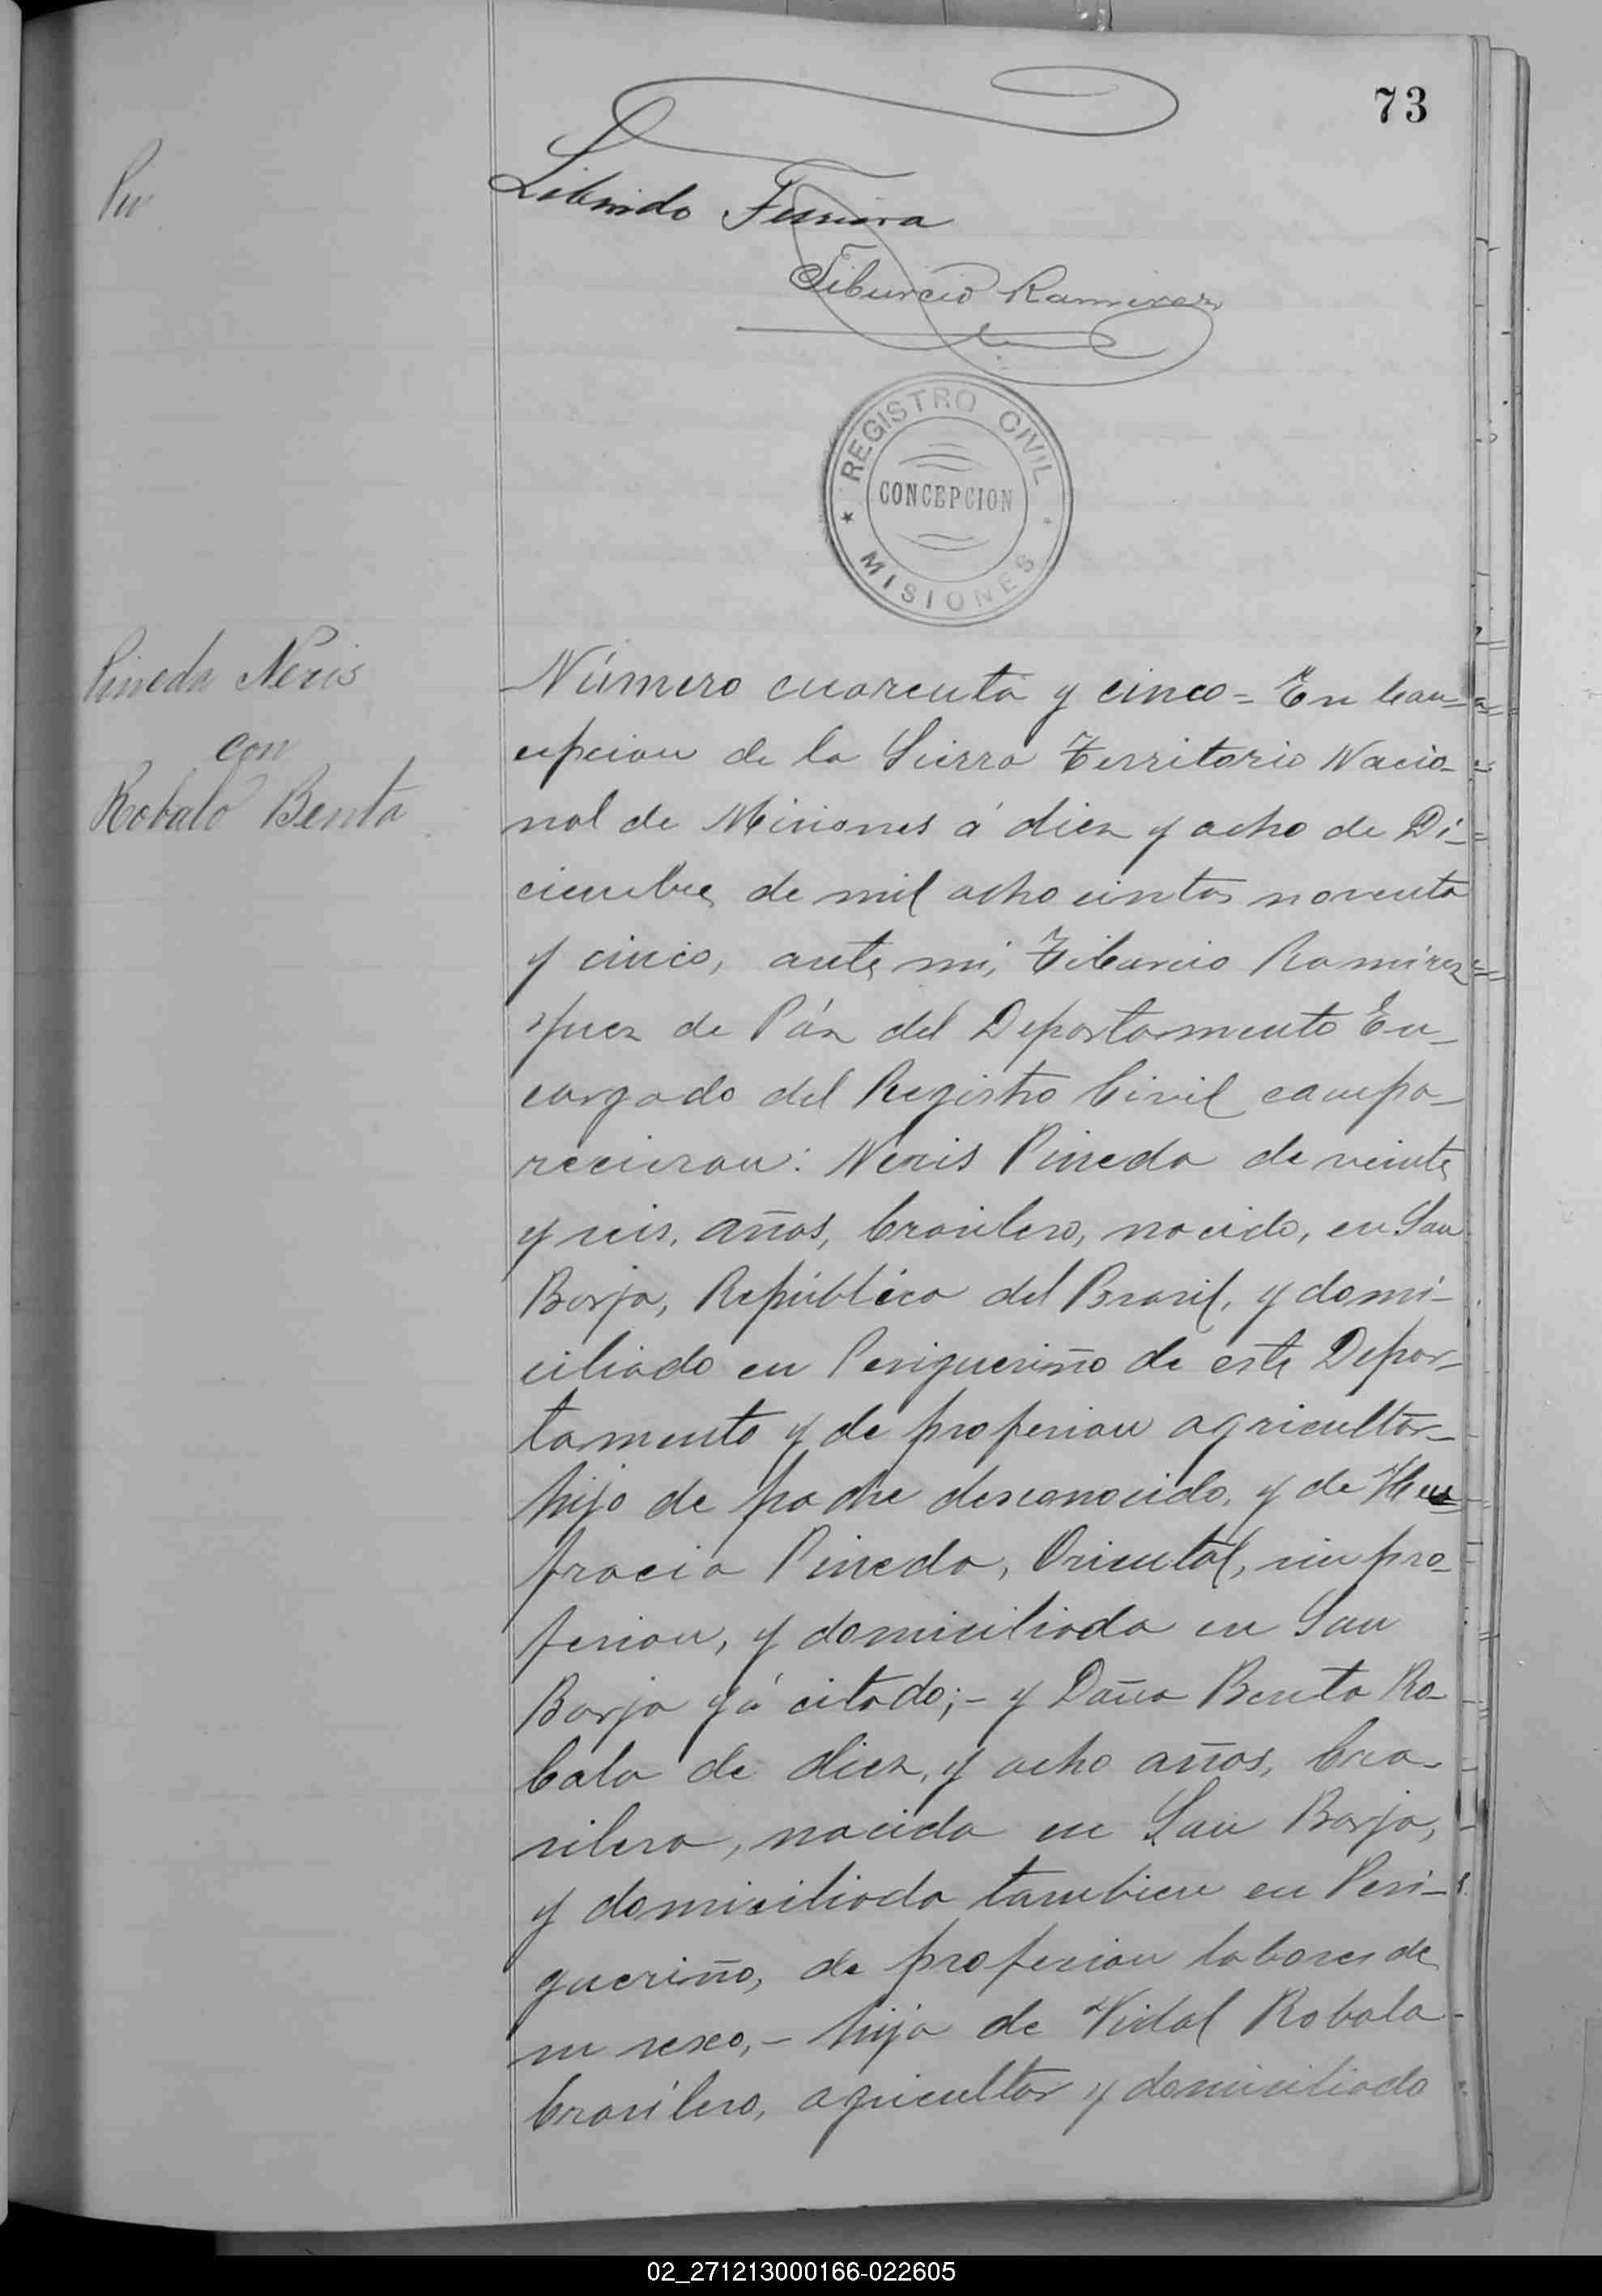 73
Pin
Libindo Ferreira
Tiburcio Ramirez
REGISTRO CIVIL
CONCEPCION
MISIONES
Pineda Neris
con
Robalo Benta
Número cuarenta y cinco = En Con=
cepcion de la Sierra Territorio Nacio-
nal de Misiones á diez y ocho de Di-
ciembre de mil ocho cientos noventa
y cinco, ante mi, Tiburcio Ramirez
Juez de Páz del Departamento En-
cargado del Registro Civil compa-
recieron: Neris Pineda de veinte
y seis, años, brasilero, nacido, en San
Borja, República del Brasil, y domi-
ciliado en Persigueriño de este Depar-
tamento y de profesion agricultor-
hijo de padre desconocido, y de Heu=
fracia Pineda, Oriental, sin pro-
fesion, y domiciliada en San
Borja yá citado;- y Doña Benta Ro-
bala de diez, y ocho años, bra-
silera, nacida en San Borja,
y domiciliada tambien en Persi-
gueriño, de profesion labores de
su sexo,- hija de Vidal Robala-
brasilero, agricultor y domiciliado
02_271213000166-022605